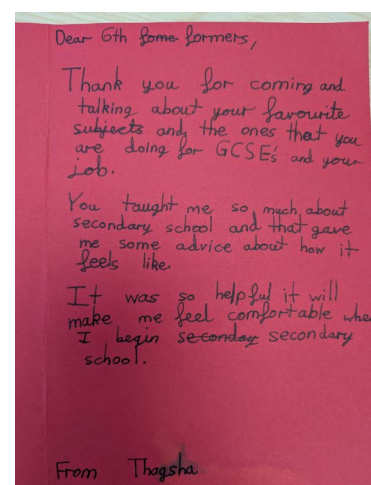 Dear 6th fome formers,
Thank you for coming and
talking about your favourite
subjects and, the ones that you
are doing for GCSE's and your
job.
You taught me so much about
secondary school and that gave
me some advice about how it
feels like.
It was so helpful it will
make me feel comfortable whe
I begin seconday secondary
school.
From Thagsha